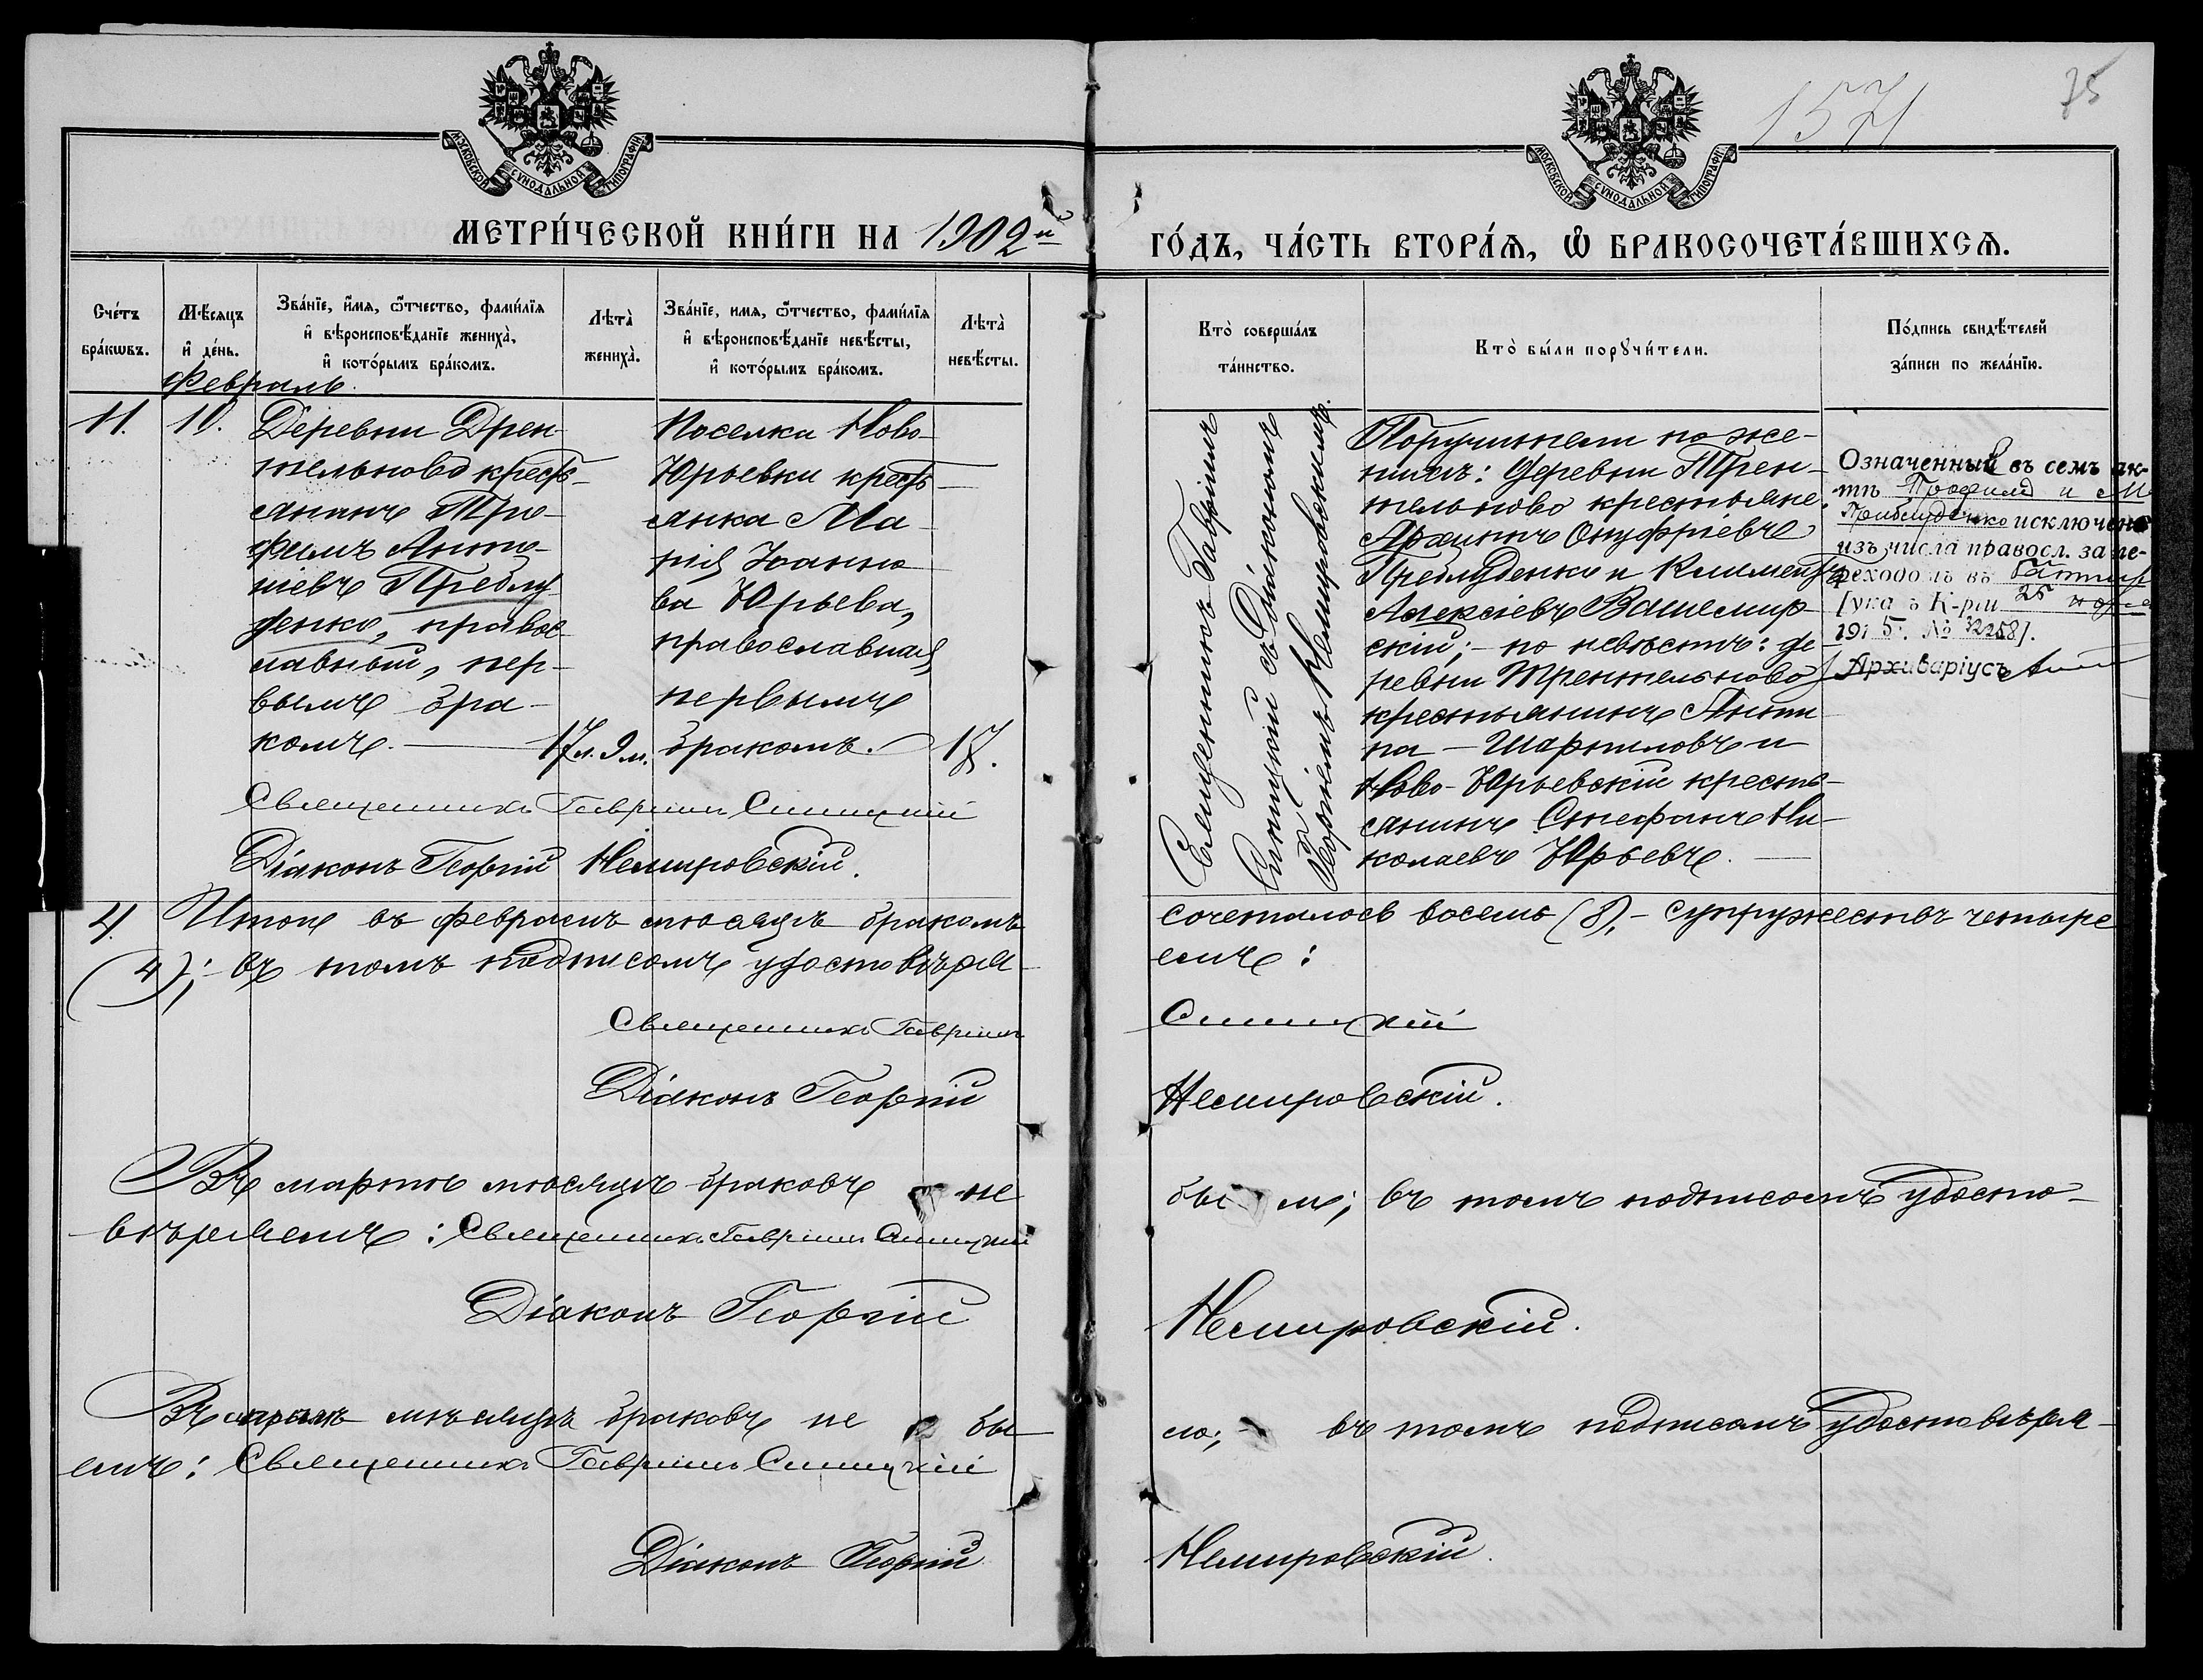 1571
75
МОСКОВСКОЙ СѴНОДАЛЬНОЙ ТИПОГРАФІИ
МОСКОВСКОЙ СѴНОДАЛЬНОЙ ТИПОГРАФІИ
МЕТРИ́ЧЕСКОЙ КНИ́ГИ НА 1902й
ГО́ДЪ, ЧА́СТЬ ВТОРА́Ѧ, Ѽ БРАКОСОЧЕТА́ВШИХСѦ.
Сче́тъ
бра́кѡвъ.
Мѣ́сяцъ
и҆ де́нь.
Зва́нїе, и҆́мѧ, ѻ҆́тчество, фами́лїѧ
и҆ вѣроисповѣ́данїе жениха̀,
и҆ кото́рымъ бра́комъ.
Лѣта̀
жениха̀.
Зва́нїе, имѧ, ѻ҆́тчество, фами́лїѧ
и҆ вѣроисповѣ́данїе невѣ́сты,
и҆ кото́рымъ бра́комъ.
Лѣта̀
невѣ́сты.
Кто̀ соверша́лъ
та́инство.
Кто̀ бы́ли порꙋчи́тели.
По́дпись свидѣ́телей
за́писи по жела́нїю.
Февраль.
11.
10.
Деревни Трен-
тельново кресть-
янинъ Тро-
фимъ Анто-
ніевъ Преблу-
денко, правос-
лавный, пер-
вымъ бра-
комъ.
17 л. 9 м.
Поселка Ново-
Юрьевки кресть-
янка Ма-
рія Іоанно-
ва Юрьева,
православная,
первымъ
бракомъ.
17.
Священникъ Гавріилъ
Синицкій съ Діакономъ
Георгіемъ Немировскимъ.
Поручители по же-
нихѣ: деревни Трен-
тельново крестьяне:
Архипъ Онуфріевъ
Преблуденко и Климентъ
Алексіевъ
скій; - по невѣстѣ: де-
ревни Трентельново
крестьянинъ Анти-
па Шарпиловъ и
Ново-Юрьевскій кресть-
янинъ Стефанъ Ни-
колаевъ Юрьевъ.
Означенный въ семъ ак-
тѣ Трофимъ и М
Приблуденко исключены
изъ числа правосл. за пе-
реходомъ въ баптизмъ
[указъ К-ріи 25 ноября
1915. № 32258].
Архиваріусъ
Священникъ Гавріилъ Синицкій
Діаконъ Георгій Немировскій.
4. Итого въ февралѣ мѣсяцѣ бракомъ сочеталось восемь (8), - супружествъ четыре
(4); - въ томъ подписомъ удостовѣряемъ:
Священникъ Гавріилъ Синицкій
Діаконъ Георгій Немировскій.
Въ мартѣ мѣсяцѣ браковъ не было; въ томъ подписомъ удосто-
вѣряемъ: Священникъ Гавріилъ Синицкій
Діаконъ Георгій Немировскій.
Въ апрѣлѣ мѣсяцѣ браковъ не было; - въ томъ подписомъ удостовѣря-
емъ: Священникъ Гавріилъ Синицкій
Діаконъ Георгій Немировскій.